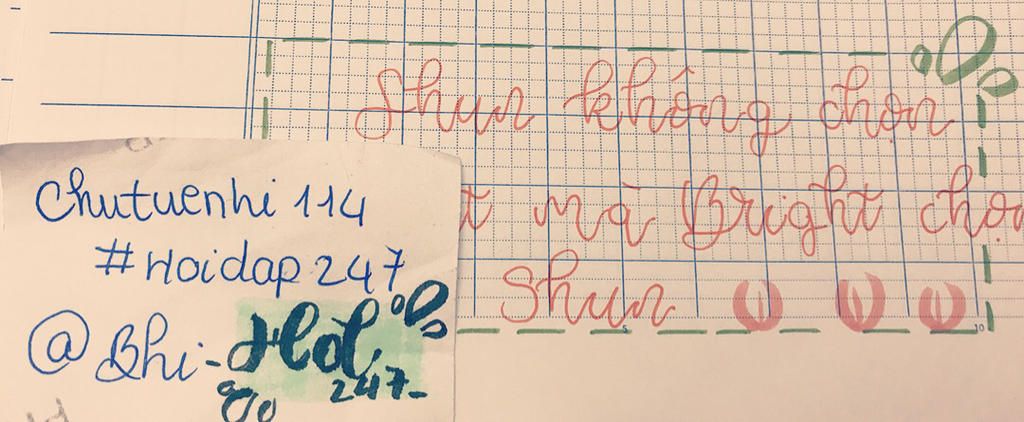 Shun không chọn
t mà Bright chọn
Shun
Chutuenhi 114
#Hoidap 247
@Bhi-Hoi
247-